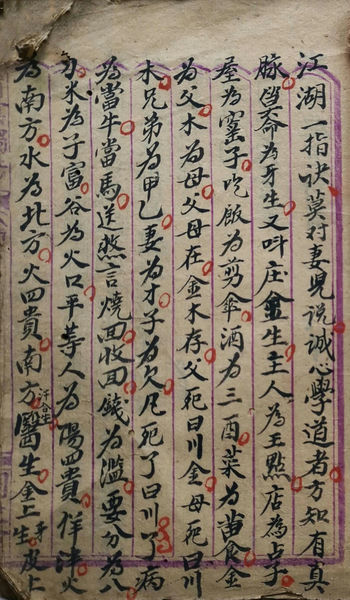 江湖一指訣莫对妻児説誠心學道者方知有真
脉筭命為牙生又呌庄金生主人為王點店為占子
屋為窰子吃飯為剪傘酒為三酉菜為苗食金
為父木為母父母在金木存父死曰川金母死曰川
木兄弟為甲乙妻為才子為欠凡死了曰川了病
為當牛當馬送煞言燒回收回錢為濫要分為八
米為子富谷為火口平等人為陽四貴佯津火
為南方水為北方火四貴南方醫生金上生皮上